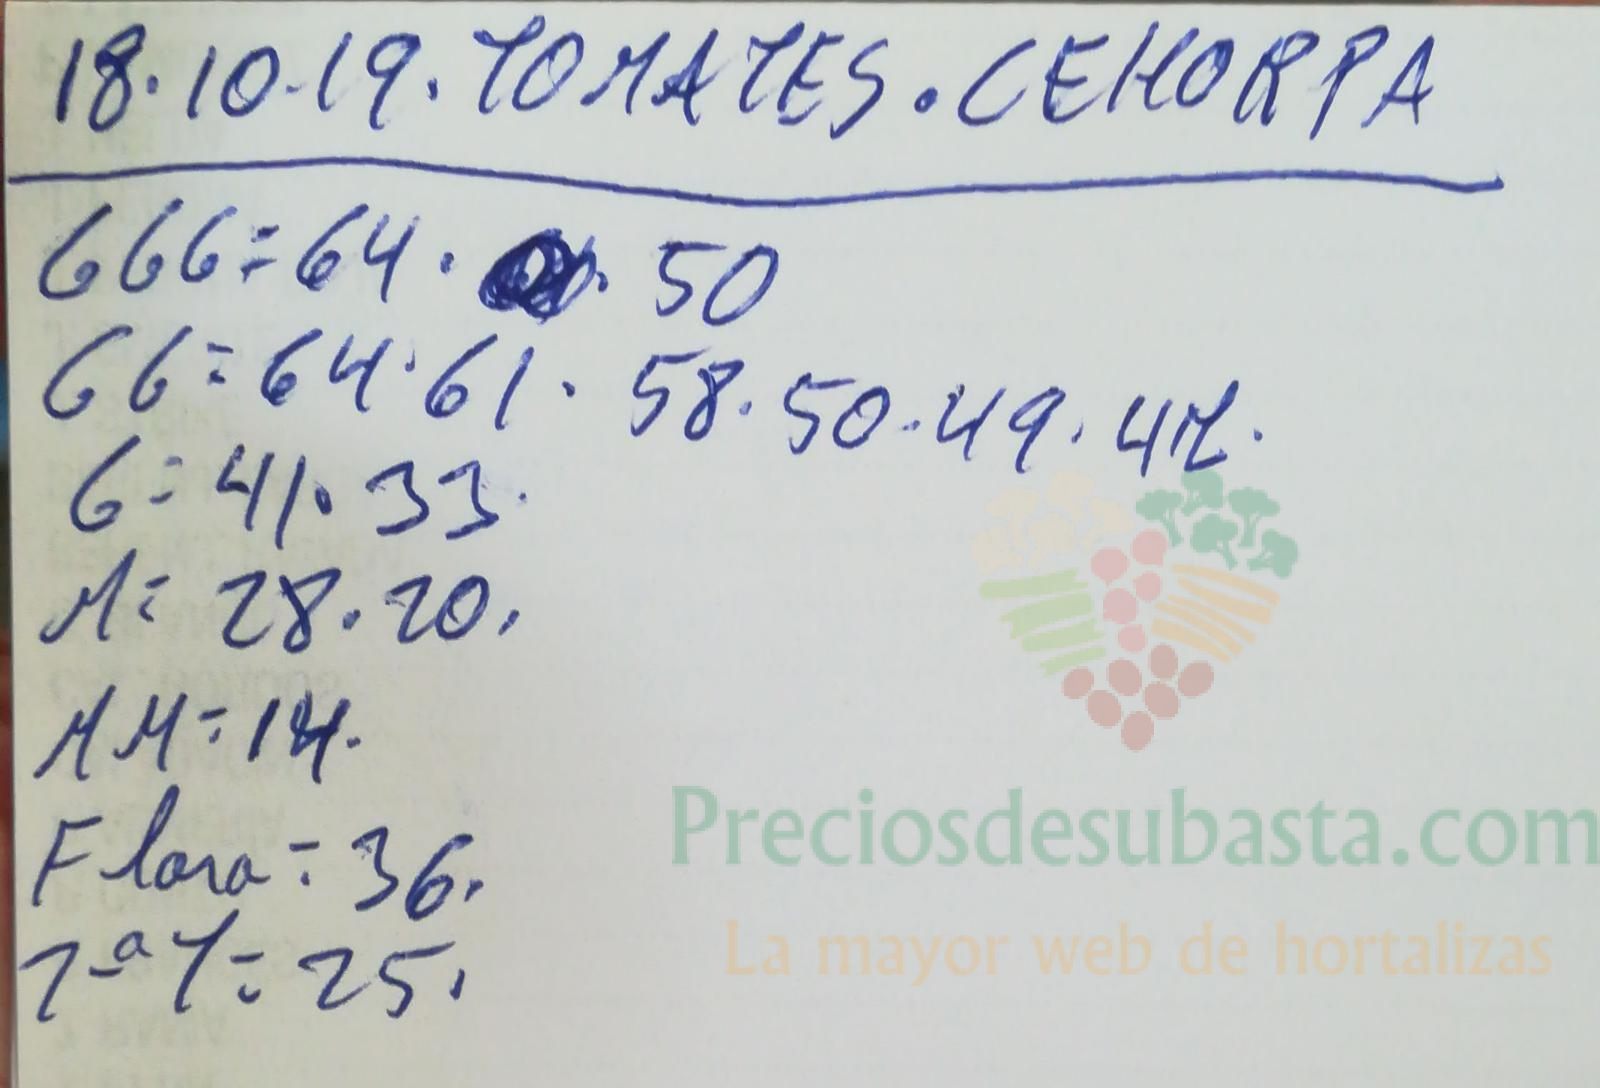 18.10.19. TOMATES. CEHORPA
GGG = 64. 50
GG = 64. 61. 58. 50. 49. 47.
G = 41. 33.
M = 28. 20.
MM = 14.
Flora = 36.
2ª T = 25.
Preciosdesubasta.com
La mayor web de hortalizas